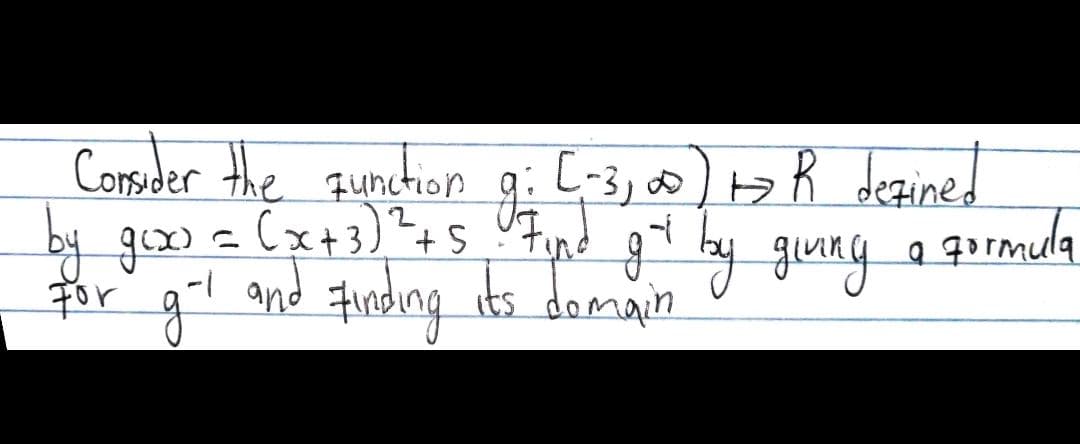 Consider the function g: [-3, ∞) ↦ R defined
by g(x) = (x+3)²+5. Find g⁻¹ by giving a formula
for g⁻¹ and finding its domain